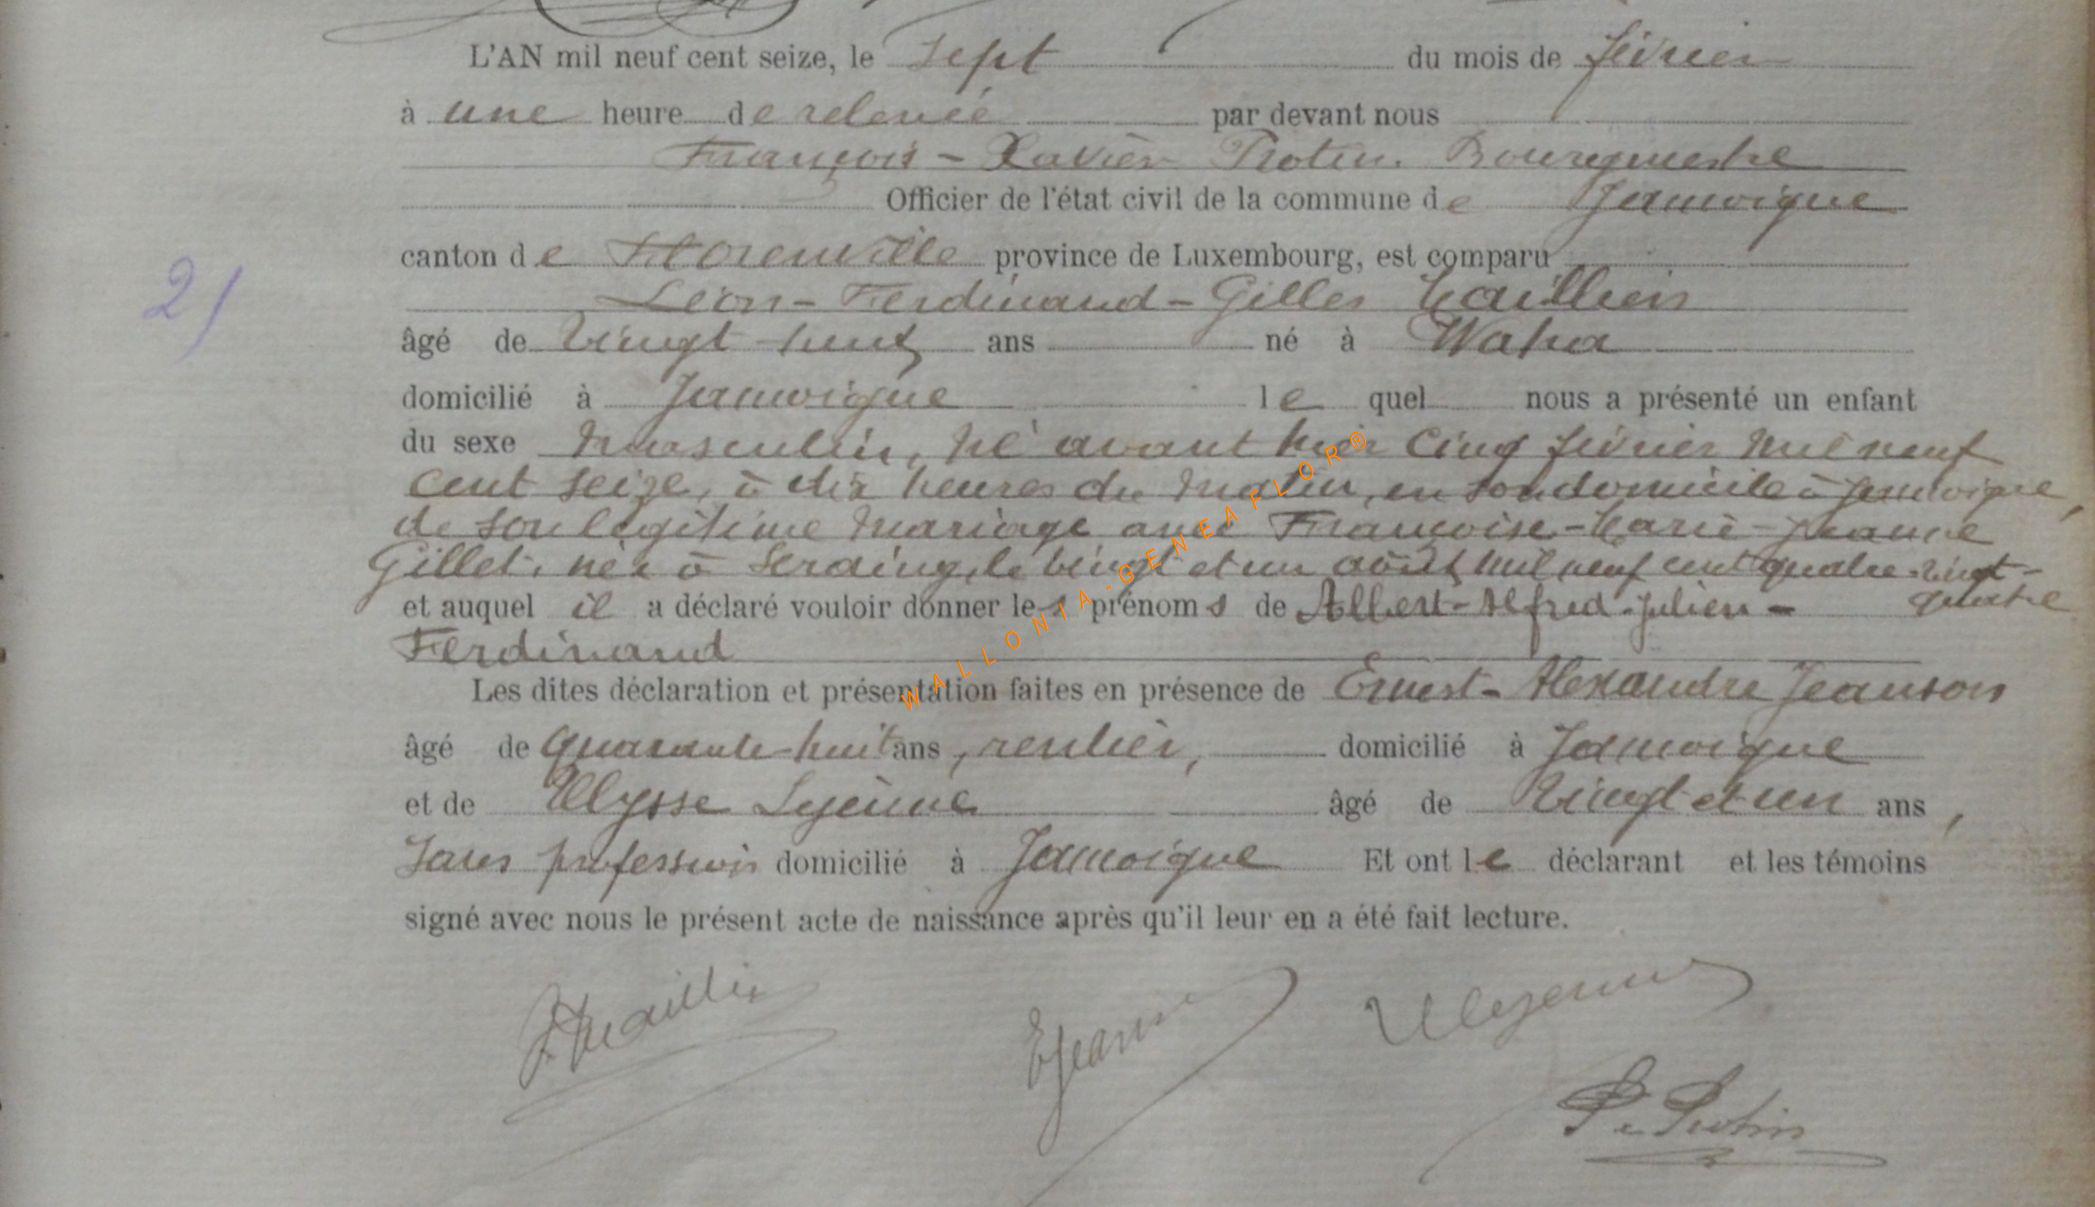 L'AN mil neuf cent seize, le sept du mois de février
à une heure de relevée par devant nous
François-Xavier Protin Bourgmestre
Officier de l'état civil de la commune de Jamoigne
canton de Florenville province de Luxembourg, est comparu
21
Léon-Ferdinand-Gilles
âgé de vingt huit ans né à Waha
domicilié à Jamoigne le quel nous a présenté un enfant
du sexe masculin, né avant hier cinq février mil neuf
cent seize, à dix heures du matin, en son domicile à Jamoigne,
de son légitime mariage avec Françoise-Marie-Jeanne
Gillet, née à Seraing, le vingt et un août mil neuf cent quatre-vingt-
quatre
et auquel il a déclaré vouloir donner les prénoms de Albert-Alfred-Julien-
Ferdinand
Les dites déclaration et présentation faites en présence de Ernest-Alexandre Jeanson
âgé de quarante-huit ans, rentier, domicilié à Jamoigne
et de Ulysse Lejeune âgé de vingt et un ans,
sans profession domicilié à Jamoigne Et ont le déclarant et les témoins
signé avec nous le présent acte de naissance après qu'il leur en a été fait lecture.
EJeanson
ULejeune
Protin
WALLONIA-GENEAFLOR®